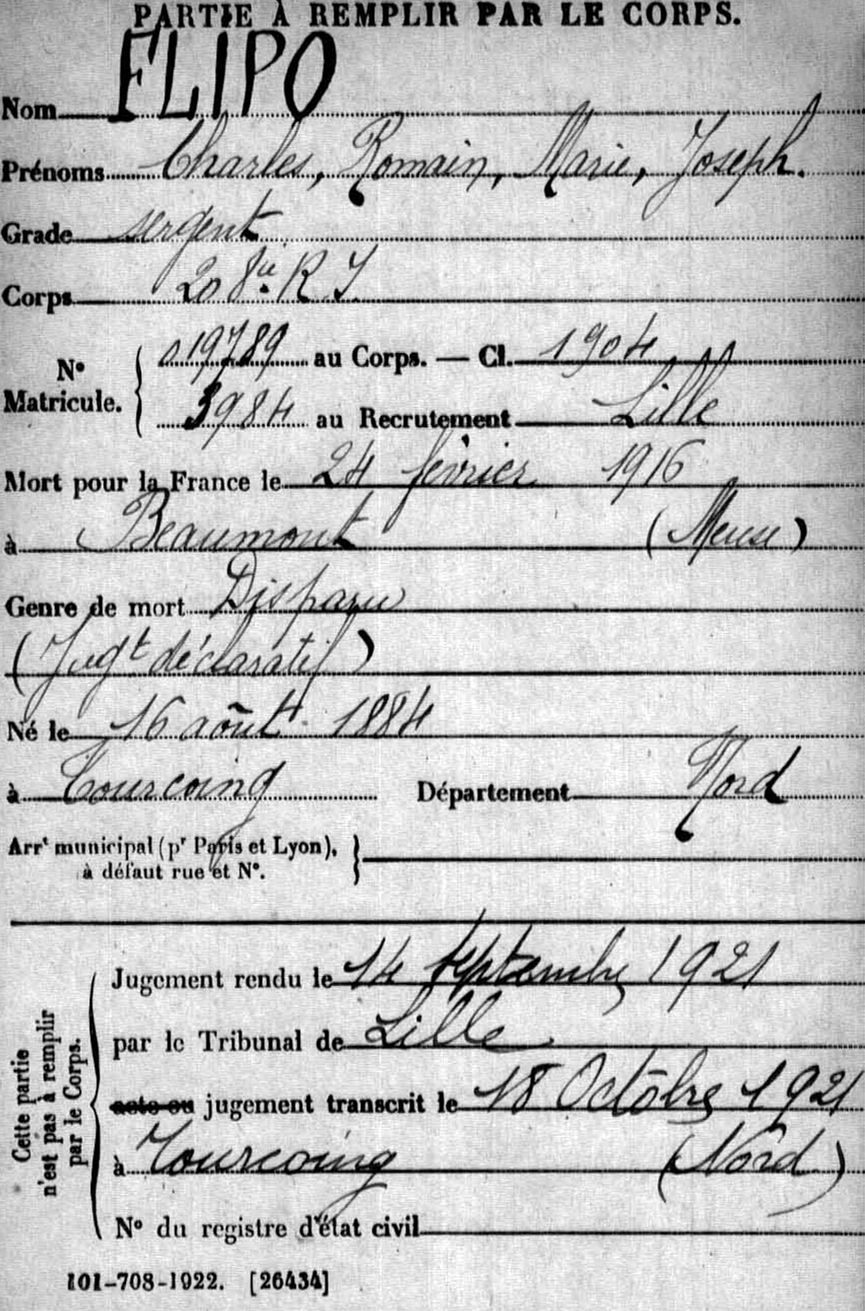 PARTIE À REMPLIR PAR LE CORPS.
Nom FLIPO
Prénoms Charles, Romain, Marie, Joseph.
Grade sergent
Corps 208e R.I.
N° Matricule. 019789 au Corps. — Cl. 1904
3984 au Recrutement Lille
Mort pour la France le 24 février 1916
à Beaumont (Meuse)
Genre de mort Disparu
(Jugt déclaratif)
Né le 16 août 1884
à Tourcoing Département Nord
Arrt municipal (pr Paris et Lyon),
à défaut rue et N°.
Cette partie
n'est pas à remplir
par le Corps.
Jugement rendu le 14 Septembre 1921
par le Tribunal de Lille
acte ou jugement transcrit le 18 Octobre 1921
à Tourcoing (Nord)
N° du registre d'état civil
101-708-1922. [26434]